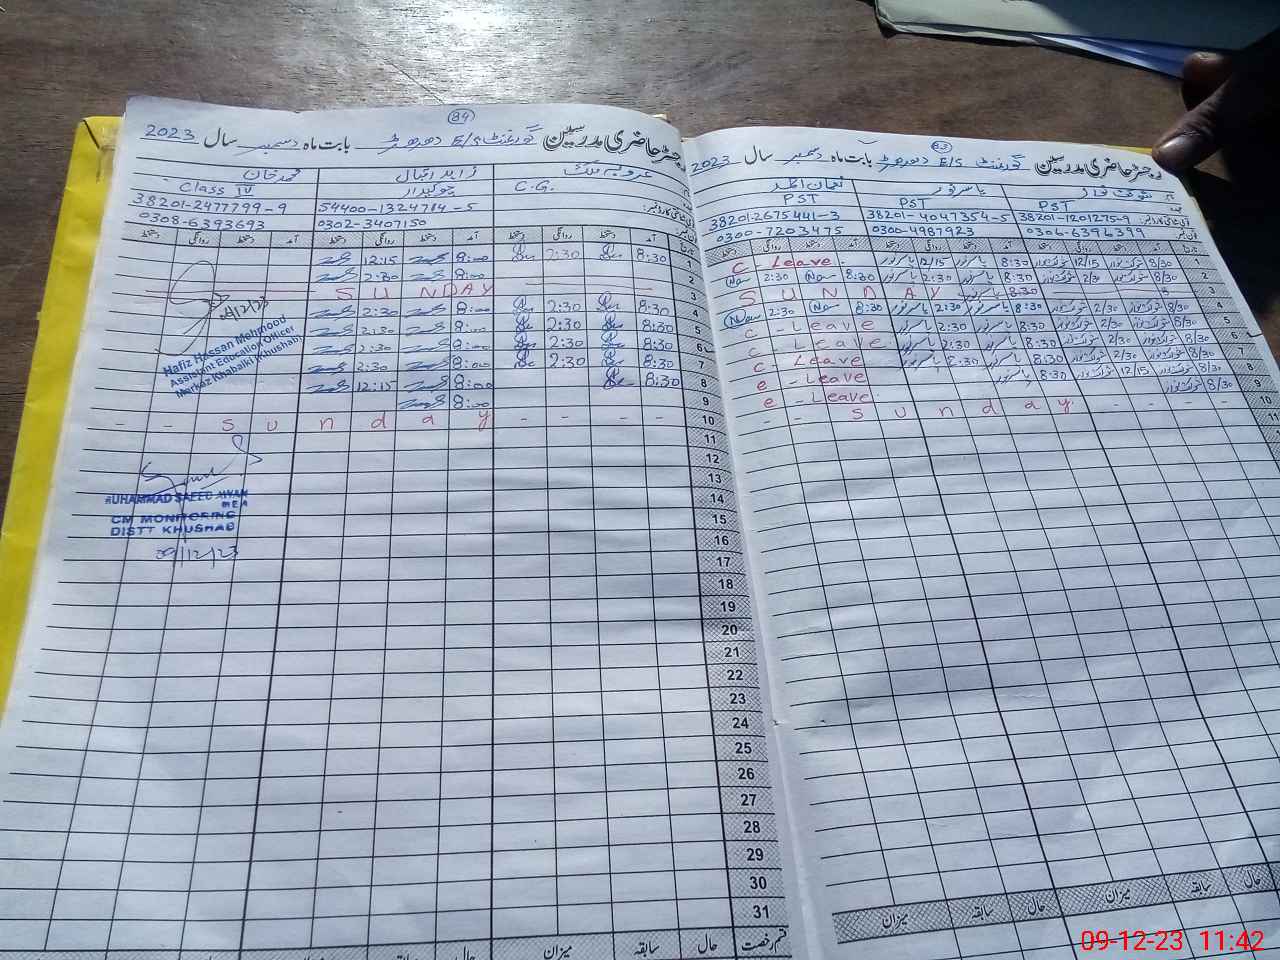 84
رجسٹر حاضری مدرسین گورنمنٹ E/S بابت ماہ دسمبر سال 2023
محمد خان
زاہد اقبال
عروبہ ملک
Class IV
چوکیدار
C.G.
38201-2477799-9
54400-1324714-5
0308-6393693
0302-3407150
دستخط روانگی دستخط آمد دستخط روانگی دستخط آمد دستخط روانگی دستخط آمد
12:15 8:00 2:30 8:30 1
2:30 8:00 2
SUNDAY 3
2:30 8:00 2:30 8:30 4
2:30 8:00 2:30 8:30 5
2:30 8:00 2:30 8:30 6
2:30 8:00 2:30 8:30 7
12:15 8:00 8:30 8
8:00 9
- - Sunday - - - - 10
11
12
13
14
15
16
17
18
19
20
21
22
23
24
25
26
27
28
29
30
31
میزان سابقہ حال قسم رخصت
09/12/23
Hafiz Hassan Mehmood
Assistant Education Officer
Markaz Khabakki Khushab
MUHAMMAD SAEED AWAN
MEA
CM MONITORING
DISTT KHUSHAB
09/12/23
83
رجسٹر حاضری مدرسین گورنمنٹ E/S بابت ماہ دسمبر سال 2023
نعمان اظہر
یاسر نور
PST
PST
PST
38201-2675441-3
38201-4047354-5
38201-1201275-9
0300-7203475
0300-4987923
0306-6396399
دستخط روانگی دستخط آمد دستخط روانگی دستخط آمد دستخط روانگی دستخط آمد
C Leave 12/15 یاسر نور 8:30 12/15 8/30 1
2:30 8:30 یاسر نور 2:30 یاسر نور 8:30 2/30 8/30 2
SUNDAY 8:30 3
2:30 8:30 یاسر نور 2:30 یاسر نور 8:30 2/30 8/30 4
C - Leave یاسر نور 2:30 یاسر نور 8:30 2/30 8/30 5
C - Leave یاسر نور 2:30 یاسر نور 8:30 2/30 8/30 6
C - Leave یاسر نور 8:30 یاسر نور 8:30 2/30 8/30 7
e - Leave یاسر نور 8:30 12/15 8/30 8
e - Leave 8/30
- - Sunday - - - - 10
11
میزان سابقہ حال میزان سابقہ حال
09-12-23 11:42